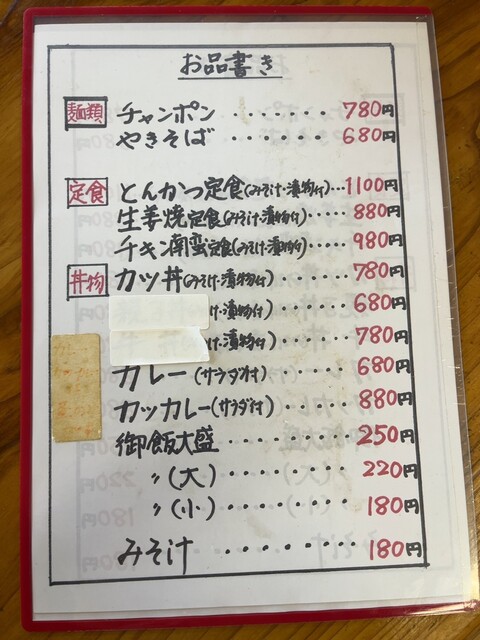 お品書き
麺類 チャンポン ・・・・・・ 780円
やきそば ・・・・・・ 680円
定食 とんかつ定食(みそ汁・漬物付)・・・1100円
生姜焼定食(みそ汁・漬物付)・・・・・880円
チキン南蛮定食(みそ汁・漬物付)・・・・980円
丼物 カツ丼(みそ汁・漬物付)・・・・・・780円
け・漬物付)・・・・・・680円
け・漬物付)・・・・・・780円
カレー(サラダ付)・・・・・・・680円
カツカレー(サラダ付)・・・・・・880円
御飯大盛・・・・・・・・・250円
〃(大)・・・・・・・・220円
〃(小)・・・・・・・・180円
みそ汁 ・・・・・・・・180円